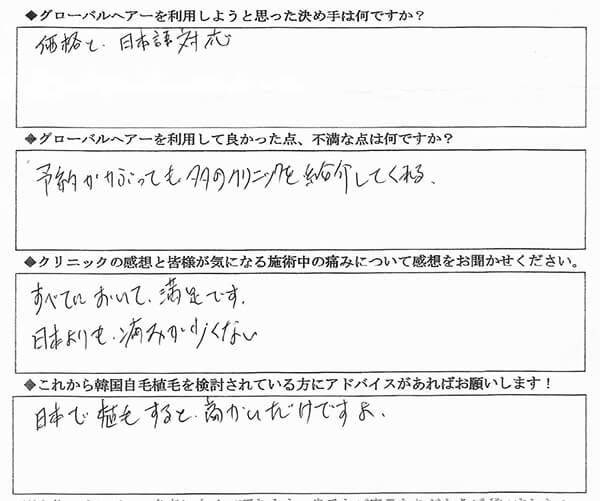 ◆グローバルヘアーを利用しようと思った決め手は何ですか？
価格と、日本語対応
◆グローバルヘアーを利用して良かった点、不満な点は何ですか？
予約がかぶっても多のクリニックを紹介してくれる、
◆クリニックの感想と皆様が気になる施術中の痛みについて感想をお聞かせください。
すべてにおいて、満足です。
日本よりも、痛みが少くない
◆これから韓国自毛植毛を検討されている方にアドバイスがあればお願いします！
日本で植毛すると、高かいだけですよ、